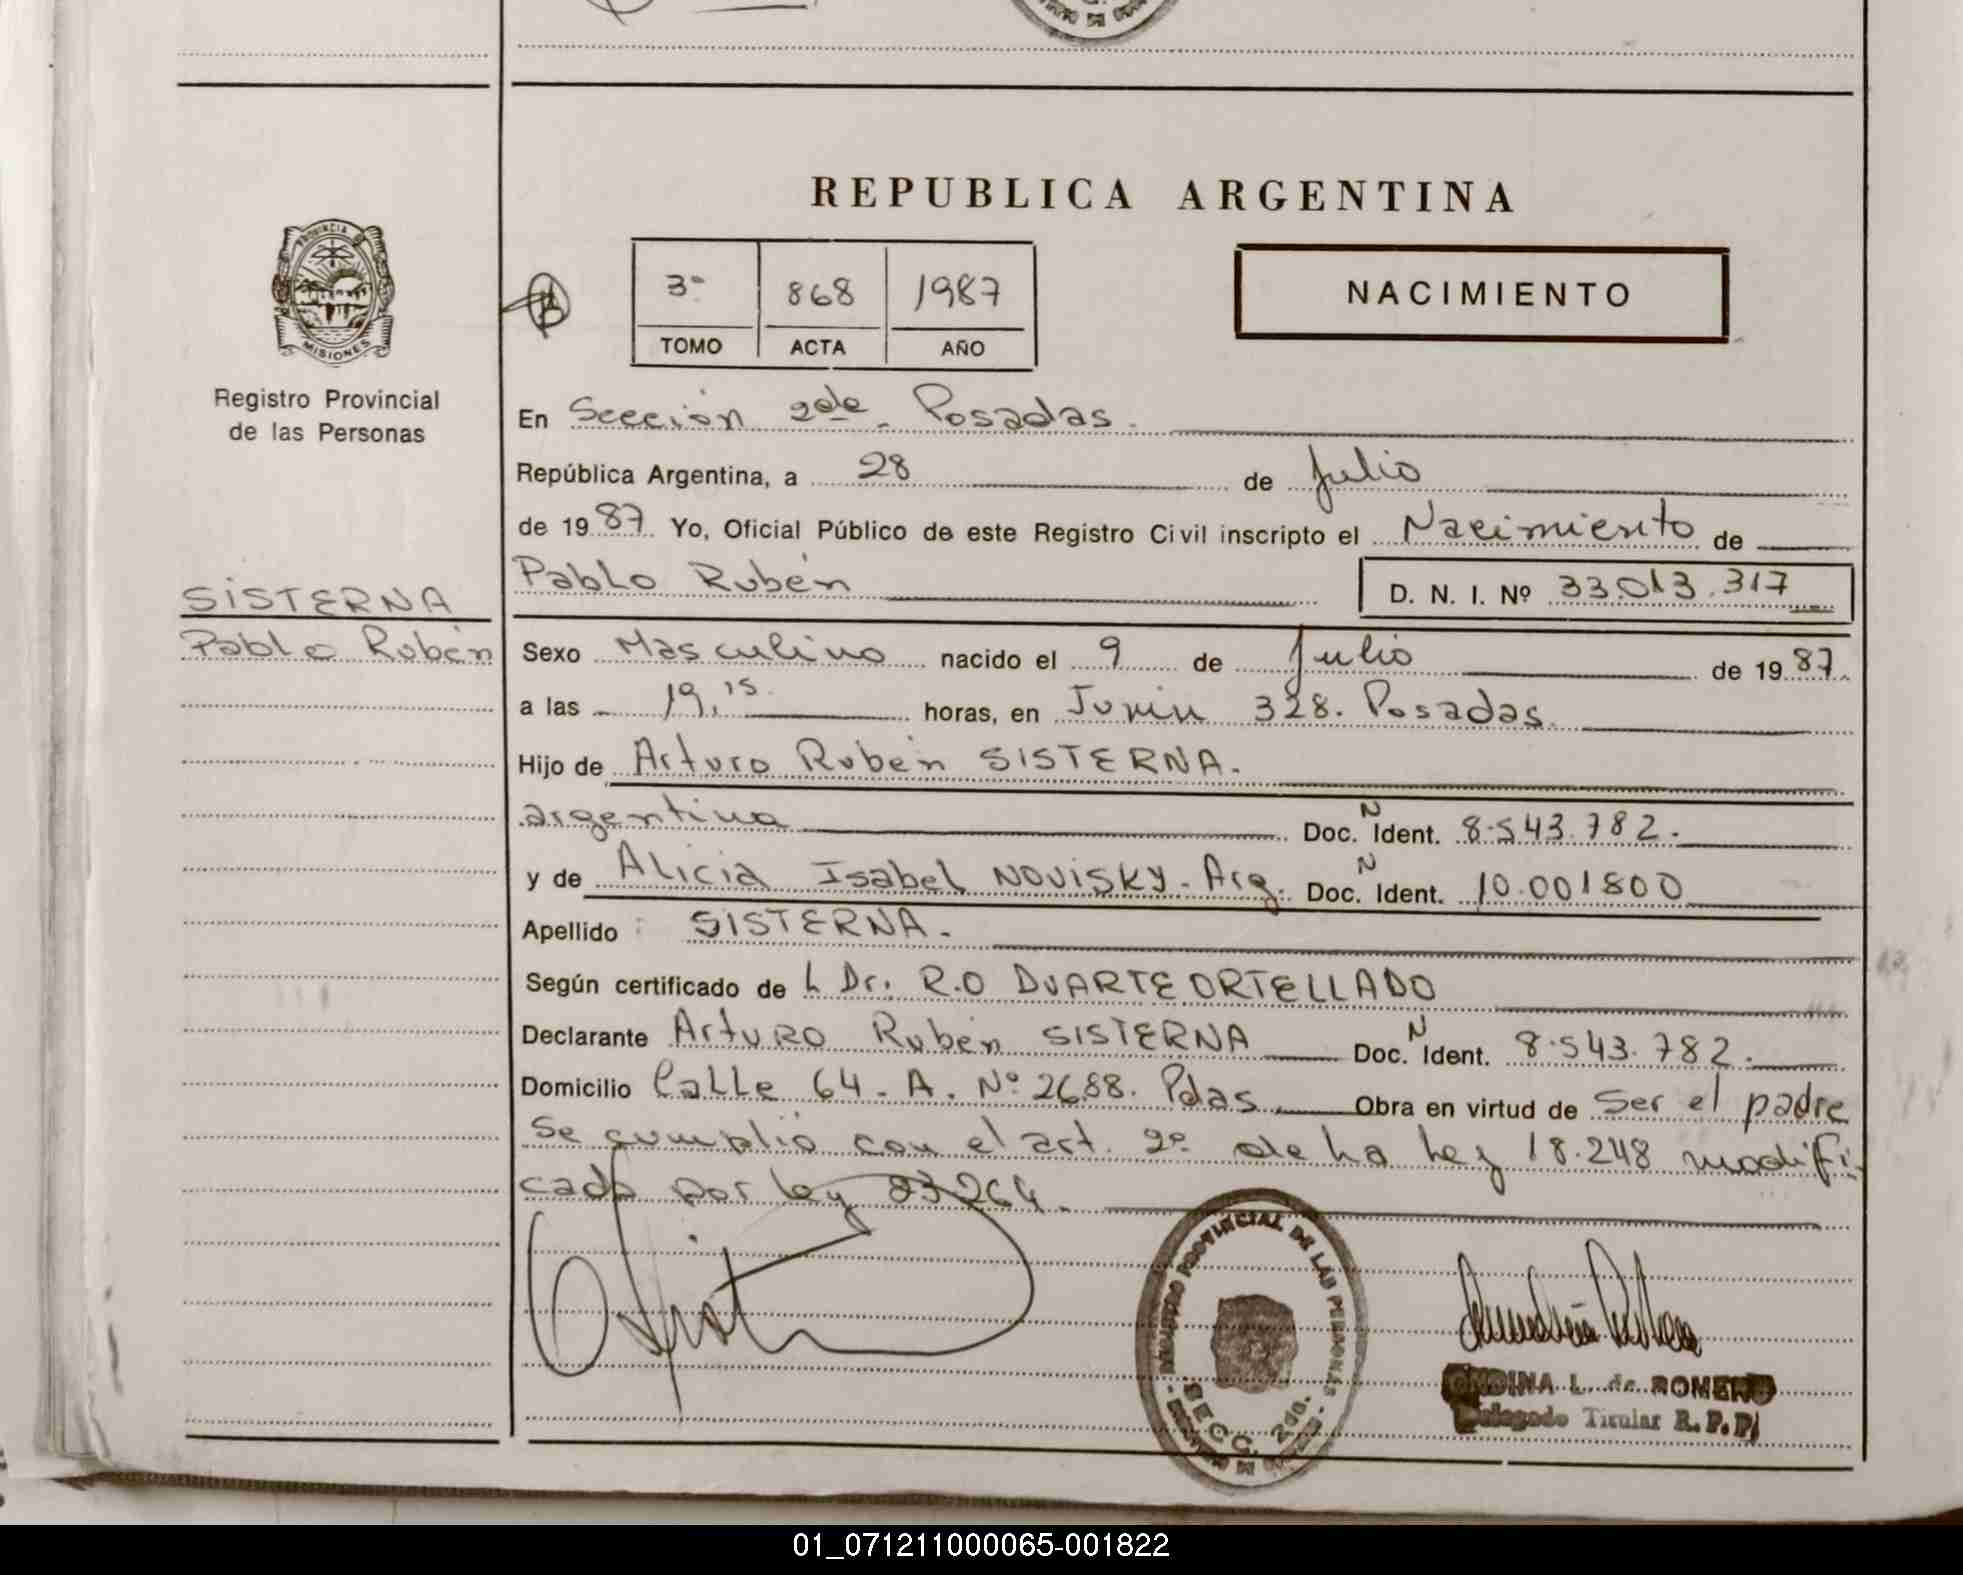 REPUBLICA ARGENTINA
PROVINCIA
MISIONES
Registro Provincial
de las Personas
3º 868 1987
TOMO ACTA AÑO
NACIMIENTO
En Sección 2da. Posadas.
República Argentina, a 28 de Julio
de 1987 Yo, Oficial Público de este Registro Civil inscripto el Nacimiento de
SISTERNA
Pablo Rubén
Pablo Rubén D. N. I. Nº 33.013.317
Sexo Masculino nacido el 9 de Julio de 1987.
a las 19,15. horas, en Junin 328. Posadas.
Hijo de Arturo Rubén SISTERNA.
argentino Doc. N Ident. 8.543.782.
y de Alicia Isabel NOVISKY - Arg. Doc. N Ident. 10.001800
Apellido SISTERNA.
Según certificado de l Dr. R.O DUARTE ORTELLADO
Declarante Arturo Rubén SISTERNA Doc. N Ident. 8.543.782.
Domicilio Calle 64 - A. Nº 2688. Pdas. Obra en virtud de Ser el padre
Se cumplió con el art. 2º de la Ley 18.248 modifi-
cado por ley 23264.
REGISTRO PROVINCIAL DE LAS PERSONAS
SECC. 2da.
ONDINA L. de ROMERO
Delegado Titular R.P.P.
01_071211000065-001822